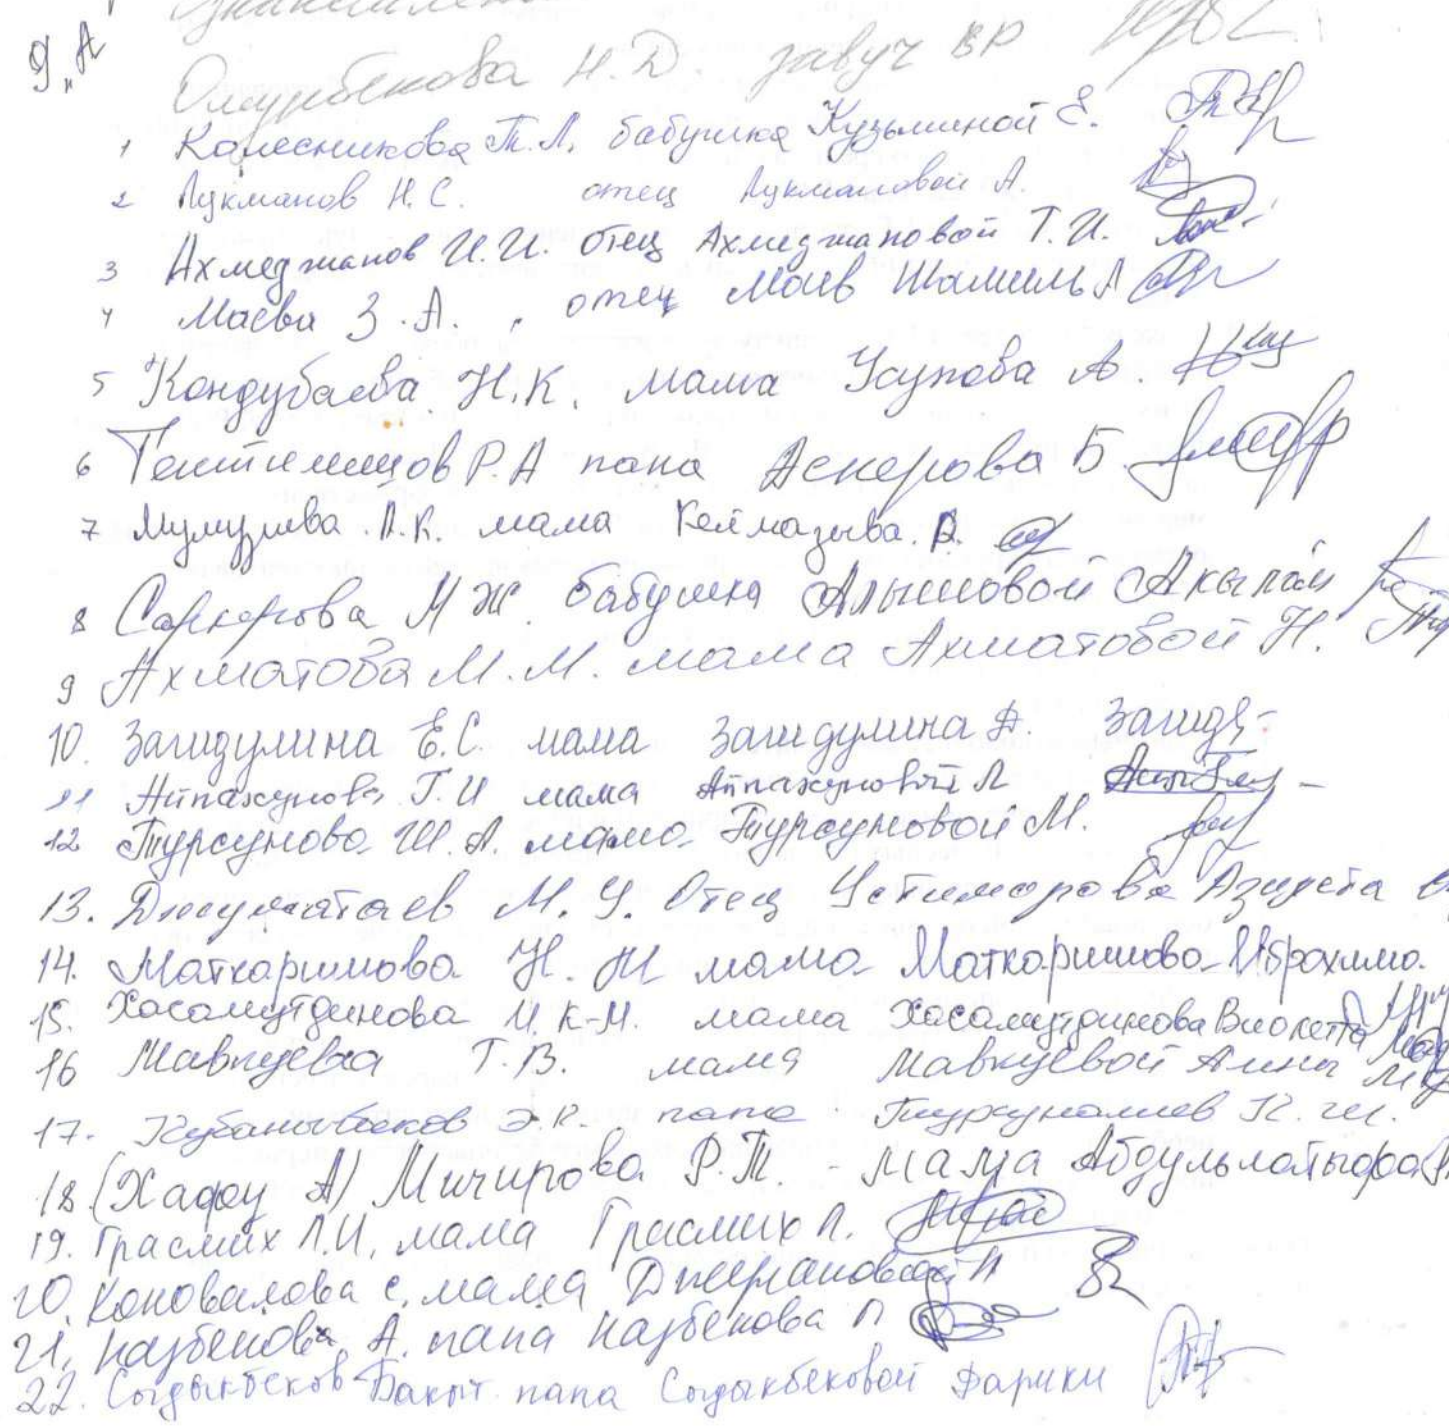 9 "А"
Омурбекова Н.Д. завуч ВР
1 Колесникова Т.Л. бабушка Кузьминой Е.
2 Лукманов Н.С. отец Лукмановой А.
3 Ахмеджанов И.И. Отец Ахмеджановой Т.И.
4 Маева З.А. отец Маев Шамиль А
5 Кондубаева Н.К. мама Усупова А.
6 Р.А папа Аскерова Б.
7 мама
8 М Ж. бабушка Акылай
9 Ахматова М.М. мама Ахматовой Н.
10. Загидулина Е.С. мама Загидулина Д. Загид
11 Айпахунова Г.И мама Айпахуновой Л
12 Турсунова Ш.А. мама Турсуновой М.
13. Джуматаев М.У. Отец Азирета
14. Маткаримова Н. М мама Маткаримова Иброхима.
15. Хасамутдинова И.К-М. мама Хасамутдинова Виолетта
16 Мавлуева Т.В. мама Мавлуевой Анны
17. Кубанычбеков Э.К. папа К.Ш.
18. (Хафоу А) Мичирова Р.Т. - мама
19. Грасмих Л.И. мама Грасмих Л.
20. Коновалова С. мама
21. Казбекова А. папа Казбекова
22. Сыдыкбеков Бакыт папа Сыдыкбековой Дарики